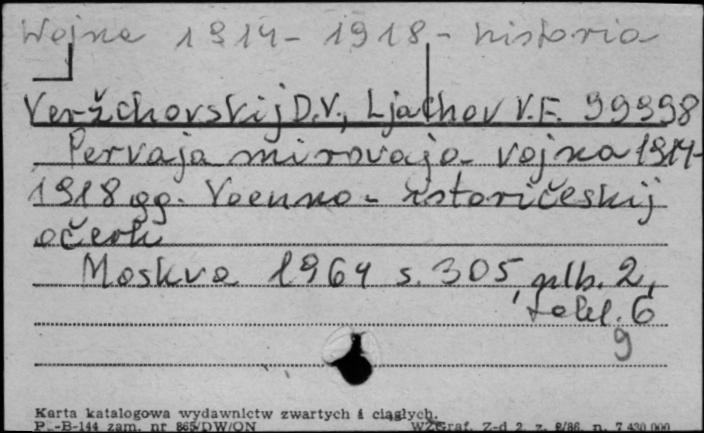 Wojna 1914-1918 - historia
Veržchovskij D.V., Ljachov V.F. 99398
Pervaja mirovaja vojna 1914-
1918 gg. Voenno-istoričeskij
očerk
Moskva 1964 s. 305, nlb. 2,
tabl. 6
9
Karta katalogowa wydawnictw zwartych i ciągłych.
Pu-B-144 zam. nr 865/DW/ON WZGraf. Z-d 2. z. 2/86. n. 7 430 000